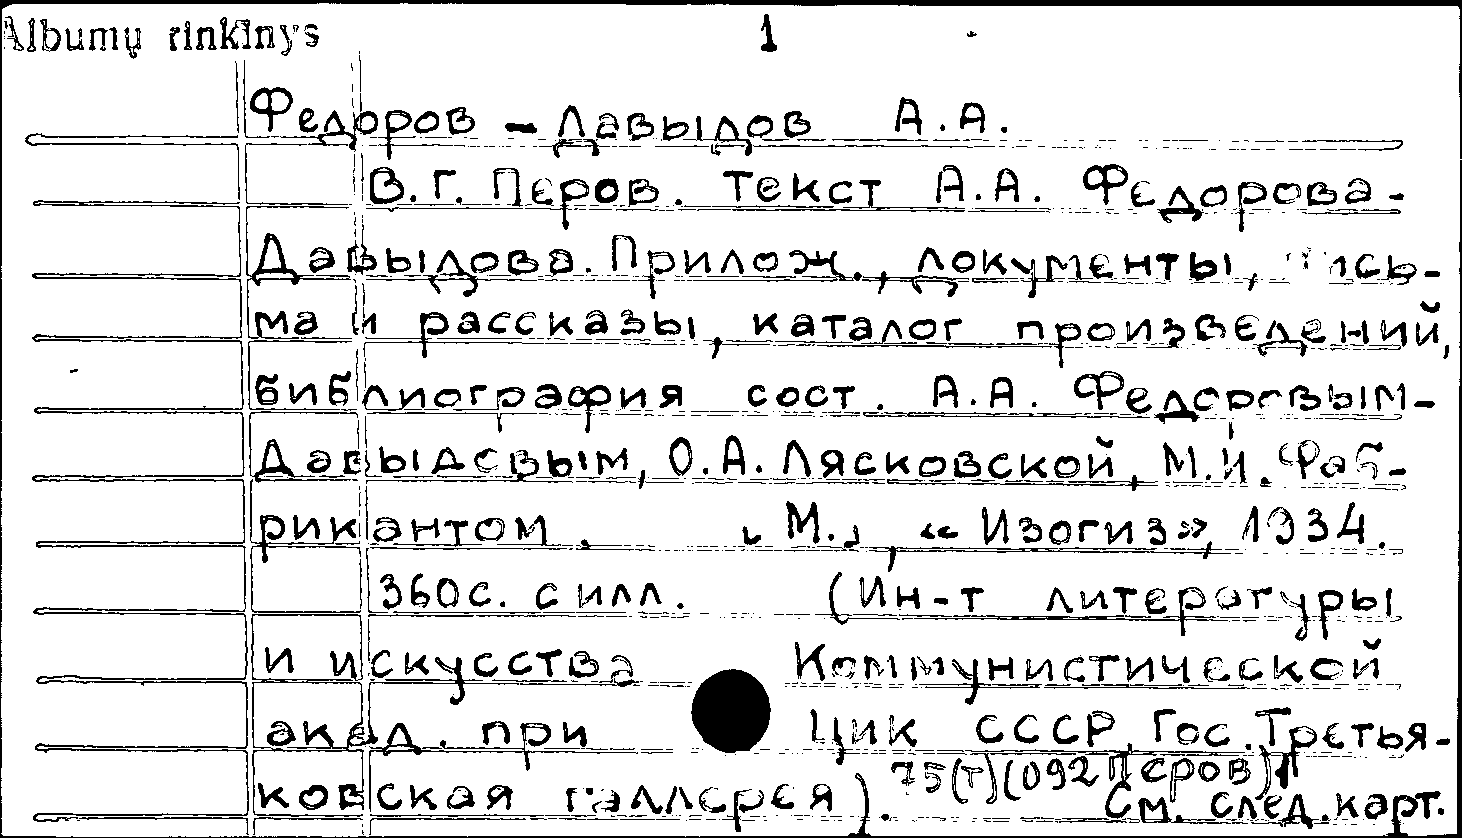 Albumų rinkinys 1
Федоров - Давыдов А.А.
В.Г. Перов. Текст А.А. Федорова-
Давыдова. Прилож., документы, пись-
ма и рассказы, каталог произведений,
библиография сост. А.А. Федоровым-
Давыдовым, О.А. Лясковской, М.И. Фаб-
рикантом. [М.], «Изогиз», 1934.
360с. с илл. (Ин-т литературы
и искусства Коммунистической
акад. при ЦИК СССР. Гос. Третья-
ковская галлерея).
75(Т)(092 Перов)1
См. след. карт.